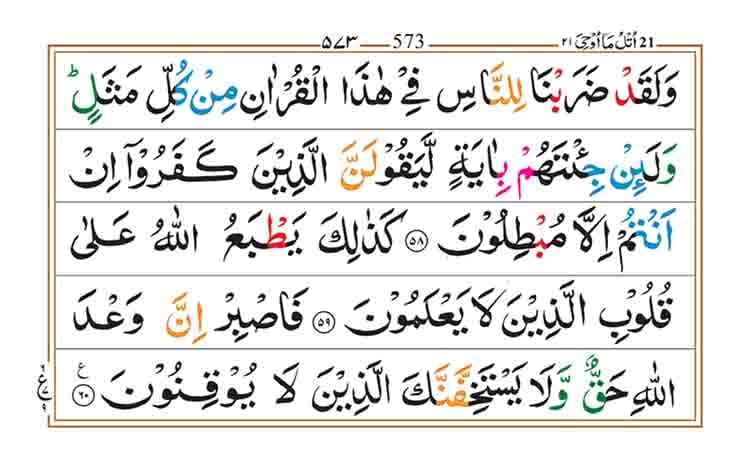 21 اُتۡلُ مَاۤ اُوۡحِیَ ٢١ 573 ۵۷۳
وَلَقَدۡ ضَرَبۡنَا لِلنَّاسِ فِیۡ هٰذَا الۡقُرۡاٰنِ مِنۡ كُلِّ مَثَلٍ ؕ
وَلَئِنۡ جِئۡتَهُمۡ بِاٰيَةٍ لَّيَقُوۡلَنَّ الَّذِيۡنَ كَفَرُوۡۤا اِنۡ
اَنۡتُمۡ اِلَّا مُبۡطِلُوۡنَ ۵۸ كَذٰلِكَ يَطۡبَعُ اللّٰهُ عَلٰى
قُلُوۡبِ الَّذِيۡنَ لَا يَعۡلَمُوۡنَ ۵۹ فَاصۡبِرۡ اِنَّ وَعۡدَ
اللّٰهِ حَقٌّ وَّلَا يَسۡتَخِفَّنَّكَ الَّذِيۡنَ لَا يُوۡقِنُوۡنَ ۶۰